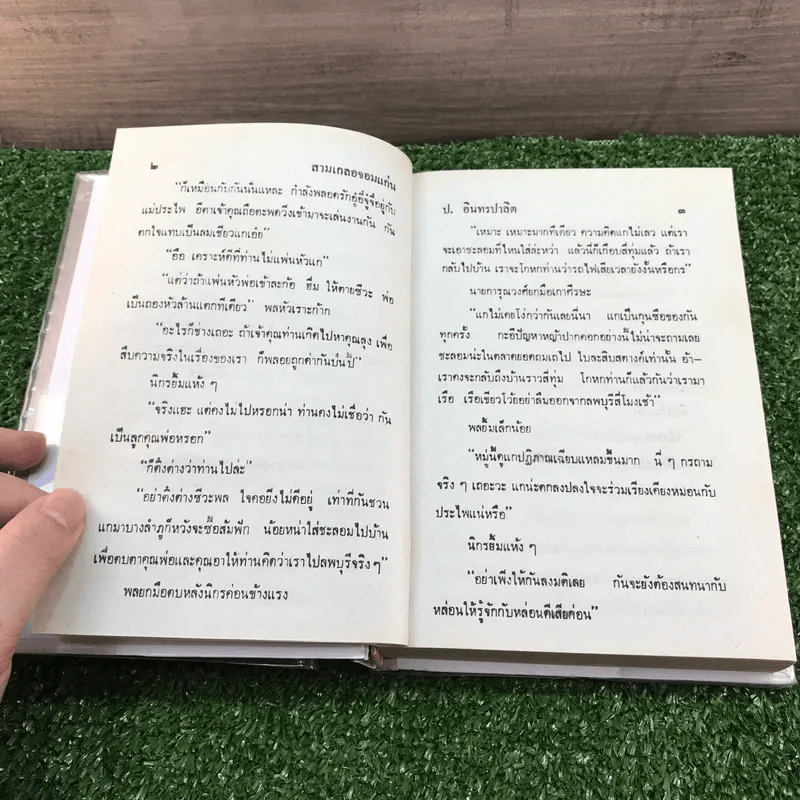 ๒
สามเกลอจอมแก่น
"ก็เหมือนกับกันนั่นแหละ กำลังพลอดรักอู้อี้จู้จี้อยู่กับ
แม่ประไพ อีตาเจ้าคุณถือตะพดวิ่งเข้ามาจะเล่นงานกัน กัน
ตกใจแทบเป็นลมเชียวแกเอ๋ย"
"ฮือ เคราะห์ดีที่ท่านไม่แพ่นหัวแก"
"แต่ว่าถ้าแพ่นหัวพ่อเข้าละก้อ ฮึ่ม ให้ตายซีวะ พ่อ
เป็นถองหัวล้านแตกทีเดียว" พลหัวเราะก้าก
"อะไรก็ช่างเถอะ ถ้าเจ้าคุณท่านเกิดไปหาคุณลุง เพื่อ
สืบความจริงในเรื่องของเรา ก็พลอยถูกด่ากันป่นปี้"
นิกรยิ้มแห้ง ๆ
"จริงแฮะ แต่คงไม่ไปหรอกน่า ท่านคงไม่เชื่อว่า กัน
เป็นลูกคุณพ่อหรอก"
"ก็ติ๊งต่างว่าท่านไปล่ะ"
"อย่าติ๊งต่างซีวะพล ใจคอยิ่งไม่ดีอยู่ เท่าที่กันชวน
แกมาบางลำภูก็หวังจะซื้อส้มฟัก น้อยหน่าใส่ชะลอมไปบ้าน
เพื่อตบตาคุณพ่อและคุณอาให้ท่านคิดว่าเราไปลพบุรีจริง ๆ"
พลยกมือตบหลังนิกรค่อนข้างแรง
ป. อินทรปาลิต
๓
"เหมาะ เหมาะมากทีเดียว ความคิดแกไม่เลว แต่เรา
จะเอาชะลอมที่ไหนใส่ล่ะหว่า แล้วนี่ก็เกือบสี่ทุ่มแล้ว ถ้าเรา
กลับไปบ้าน เราจะโกหกท่านว่ารถไฟเสียเวลายังงั้นหรือกร"
นายการุณวงศ์ยกมือเกาศีรษะ
"แกไม่เคยโง่กว่ากันเลยนี่นา แกเป็นกุนซือของกัน
ทุกครั้ง กะอีปัญหาหญ้าปากคอกอย่างนี้ไม่น่าจะถามเลย
ชะลอมน่ะในตลาดยอดถมเถไป ใบละสิบสตางค์เท่านั้น อ้า—
เราคงจะกลับถึงบ้านราวสี่ทุ่ม โกหกท่านก็แล้วกันว่าเรามา
เรือ เรือเขียวโว้ยอย่าลืมออกจากลพบุรีสี่โมงเช้า"
พลยิ้มเล็กน้อย
"หมู่นี้ดูแกปฏิภาณเฉียบแหลมขึ้นมาก นี่ ๆ กรถาม
จริง ๆ เถอะวะ แกน่ะตกลงปลงใจจะร่วมเรียงเคียงหมอนกับ
ประไพแน่หรือ"
นิกรยิ้มแห้ง ๆ
"อย่าเพิ่งให้กันลงมติเลย กันจะยังต้องสนทนากับ
หล่อนให้รู้จักกับหล่อนดีเสียก่อน"